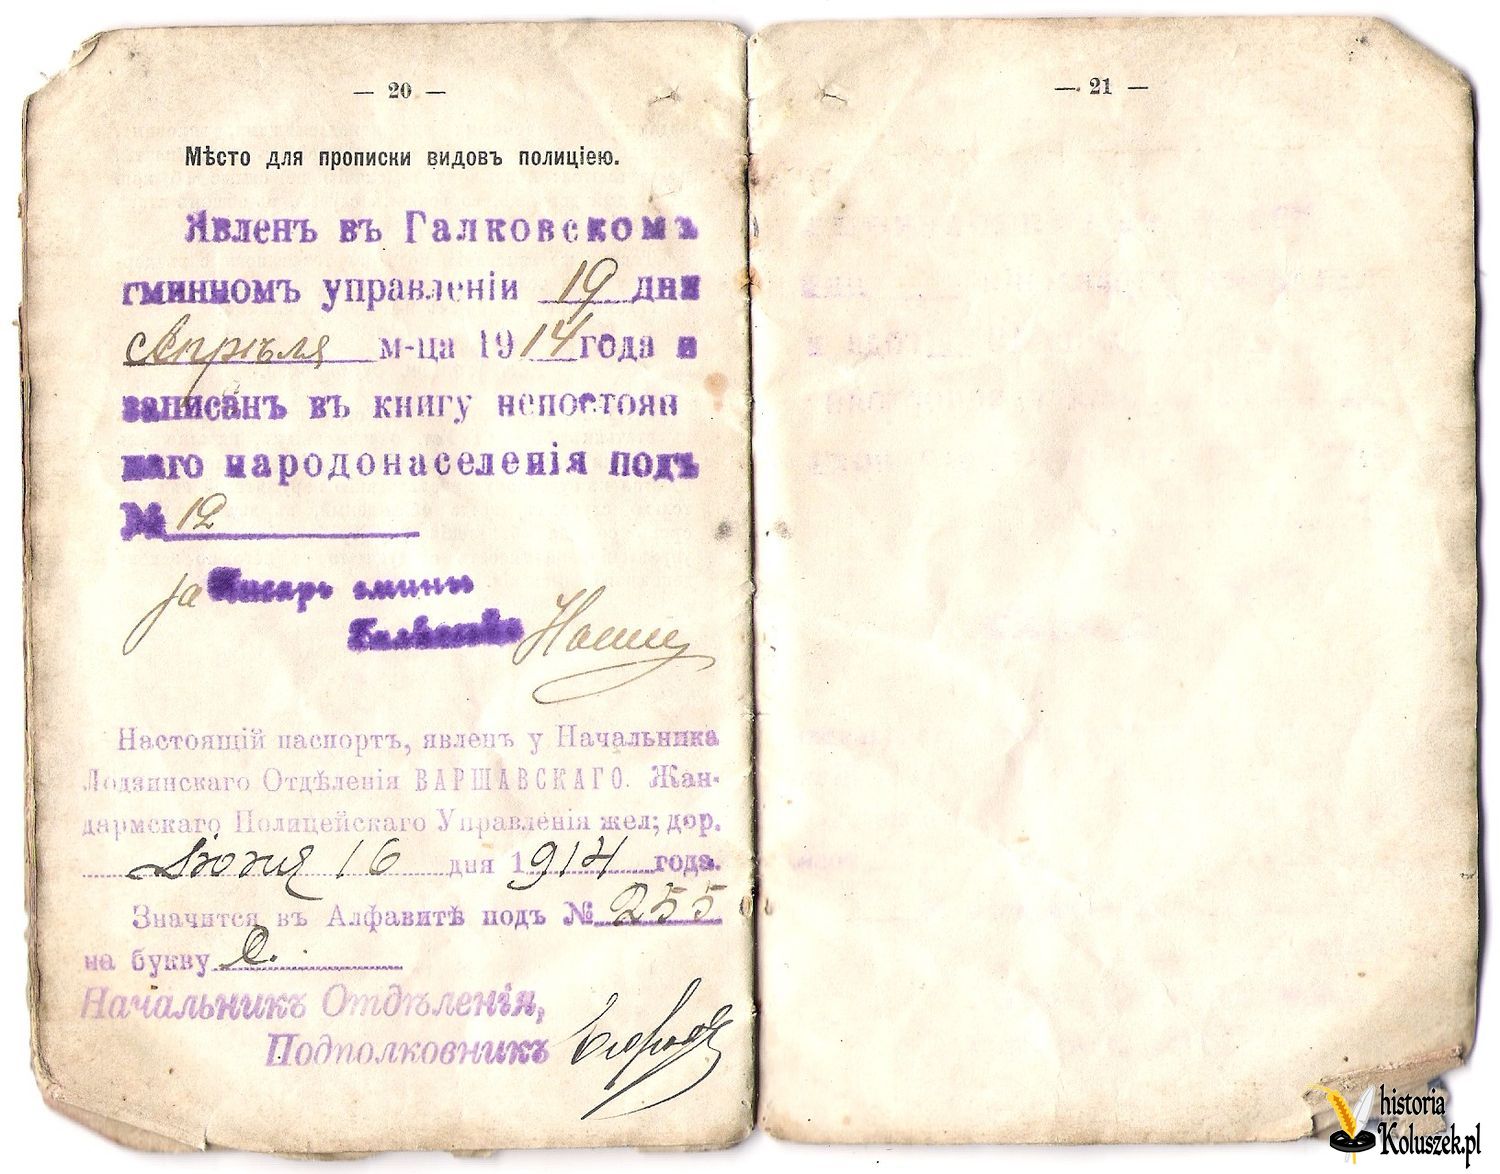 — 20 —
Мѣсто для прописки видовъ полиціею.
Явленъ въ Галковскомъ
гминномъ управленіи 19 дня
Апрѣля м-ца 1914 года и
записанъ въ книгу непостоян
наго народонаселенія подъ
№ 12
за Писарь гмины
Настоящій паспортъ, явленъ у Начальника
Лодзинскаго Отдѣленія ВАРШАВСКАГО. Жан-
дармскаго Полицейскаго Управленія жел; дор.
Іюня 16 дня 1914 года.
Значится въ Алфавитѣ подъ № 255
на букву С.
Начальникъ Отдѣленія,
Подполковникъ
— 21 —
historia
Koluszek.pl